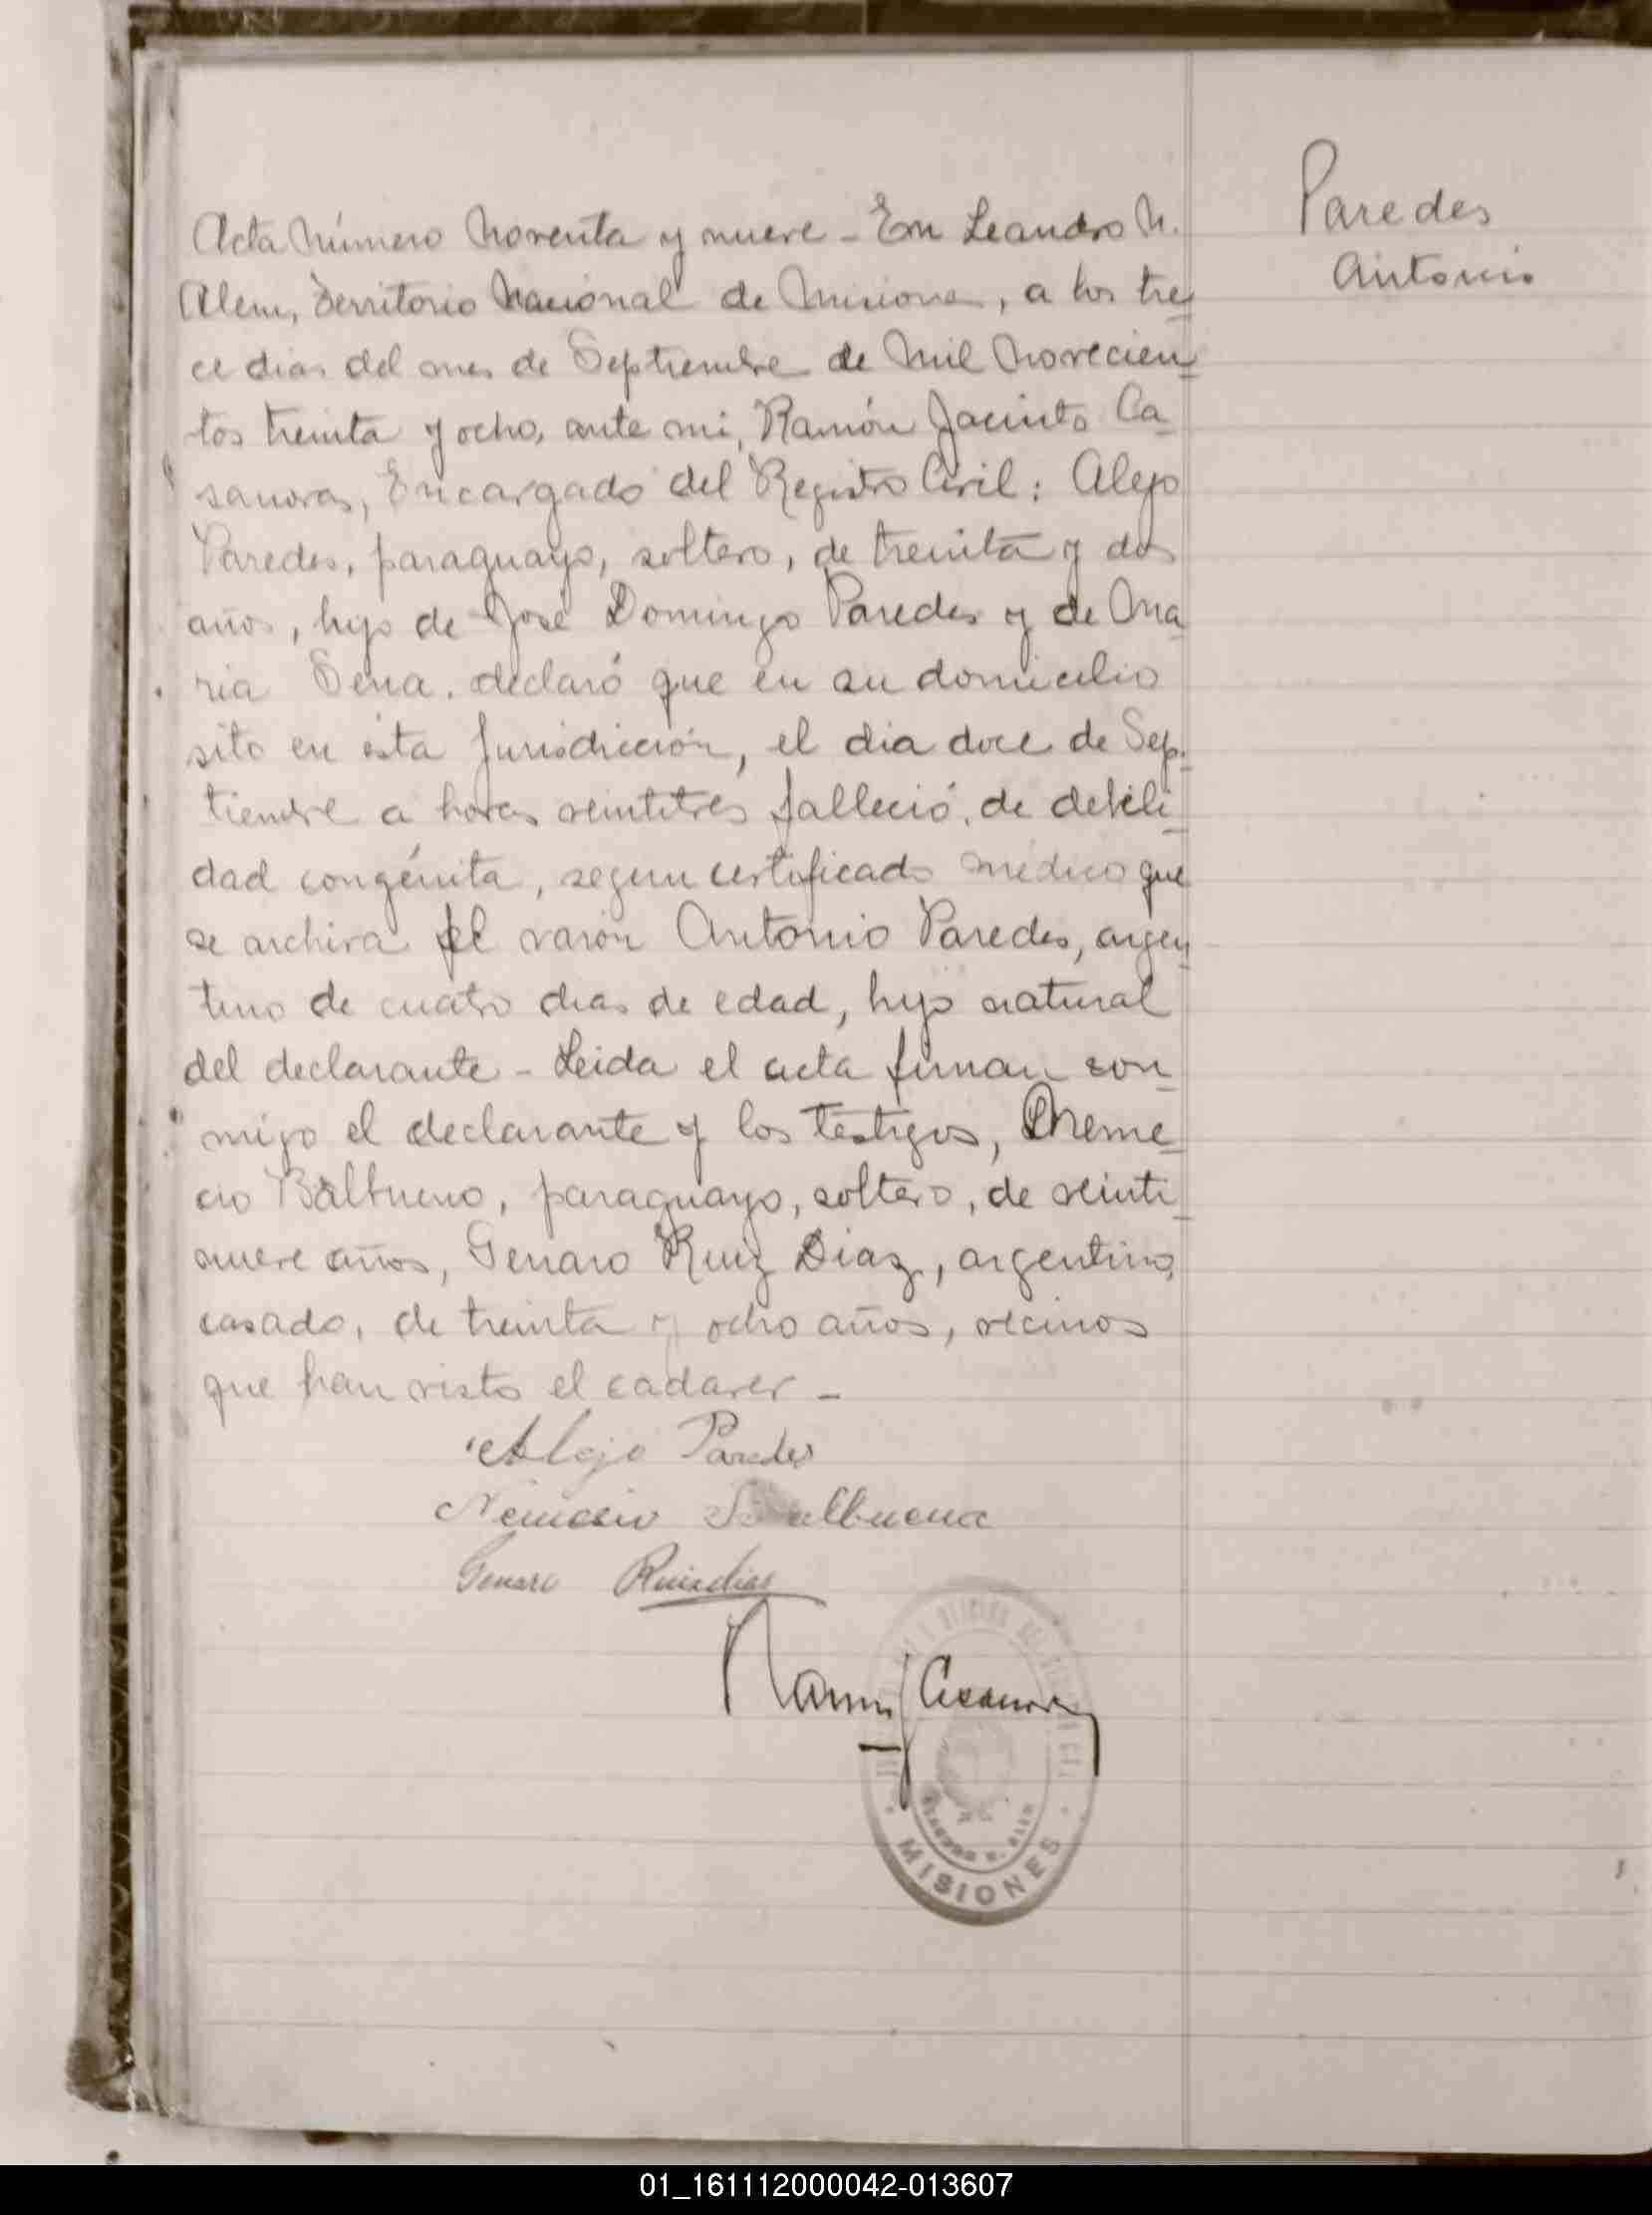 Paredes
Antonio
Acta Número Noventa y nueve - En Leandro N.
Alem, Territorio Nacional de Misiones, a los tre
ce dias del mes de Septiembre de Mil Novecien
tos treinta y ocho, ante mi, Ramón Jacinto Ca
sanova, Encargado del Registro Civil: Alejo
Paredes, paraguayo, soltero, de treinta y dos
años, hijo de José Domingo Paredes y de Ma
ria Sena. declaró que en su domicilio
sito en ésta Jurisdicción, el dia doce de Sep
tiembre a horas veintitres falleció, de debili
dad congénita, segun certificado médico que
se archiva el varón Antonio Paredes, argen
tino de cuatro dias de edad, hijo natural
del declarante - Leida el acta firman con
migo el declarante y los testigos, Neme
cio Balbueno, paraguayo, soltero, de veinti
nueve años, Genaro Ruiz Diaz, argentino,
casado, de treinta y ocho años, vecinos
que han visto el cadaver -
Alejo Paredes
Nemecio Balbuena
Genaro Ruizdias
Ramon J Casanova
LEANDRO N. ALEM
MISIONES
01_161112000042-013607